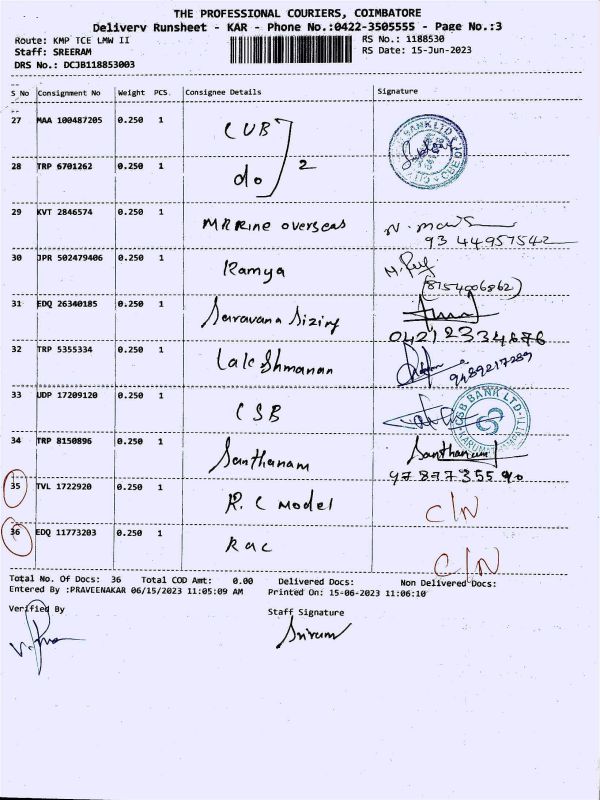 THE PROFESSIONAL COURIERS, COIMBATORE
Delivery Runsheet - KAR - Phone No.:0422-3505555 - Page No.:3
Route: KMP TCE LMW II RS No.: 1188530
Staff: SREERAM RS Date: 15-Jun-2023
DRS No.: DCJB118853003
S No Consignment No Weight PCS. Consignee Details Signature
27 MAA 100487205 0.250 1 CUB
28 TRP 6701262 0.250 1 do 2
29 KVT 2846574 0.250 1 MRRine overseas
93 44957542
30 JPR 502479406 0.250 1 Ramya
(8154006862)
31 EDQ 26340185 0.250 1 Saravana Sizing
0421 2334676
32 TRP 5355334 0.250 1 Lakshmanan
9489217289
33 UDP 17209120 0.250 1 CSB
CSB BANK LTD
34 TRP 8150896 0.250 1 Santhanam Santhanam
97877355 90
35 TVL 1722920 0.250 1 R.C Model C/N
36 EDQ 11773203 0.250 1 Rac C/N
Total No. Of Docs: 36 Total COD Amt: 0.00 Delivered Docs: Non Delivered Docs:
Entered By :PRAVEENAKAR 06/15/2023 11:05:09 AM Printed On: 15-06-2023 11:06:10
Verified By Staff Signature
Sriram